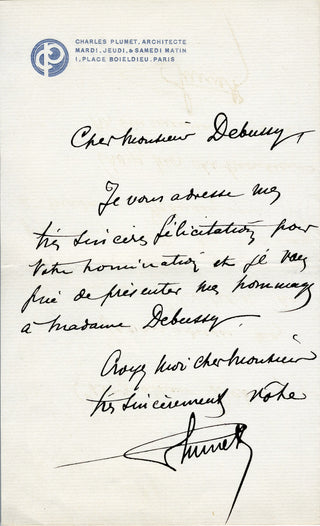 CHARLES PLUMET, ARCHITECTE
MARDI, JEUDI, & SAMEDI MATIN
1, PLACE BOIELDIEU, PARIS
Cher Monsieur Debussy,
Je vous adresse mes
très sincères félicitations pour
votre nomination et je vous
prie de présenter mes hommages
à Madame Debussy.
Croyez moi cher Monsieur
très sincèrement votre
Plumet